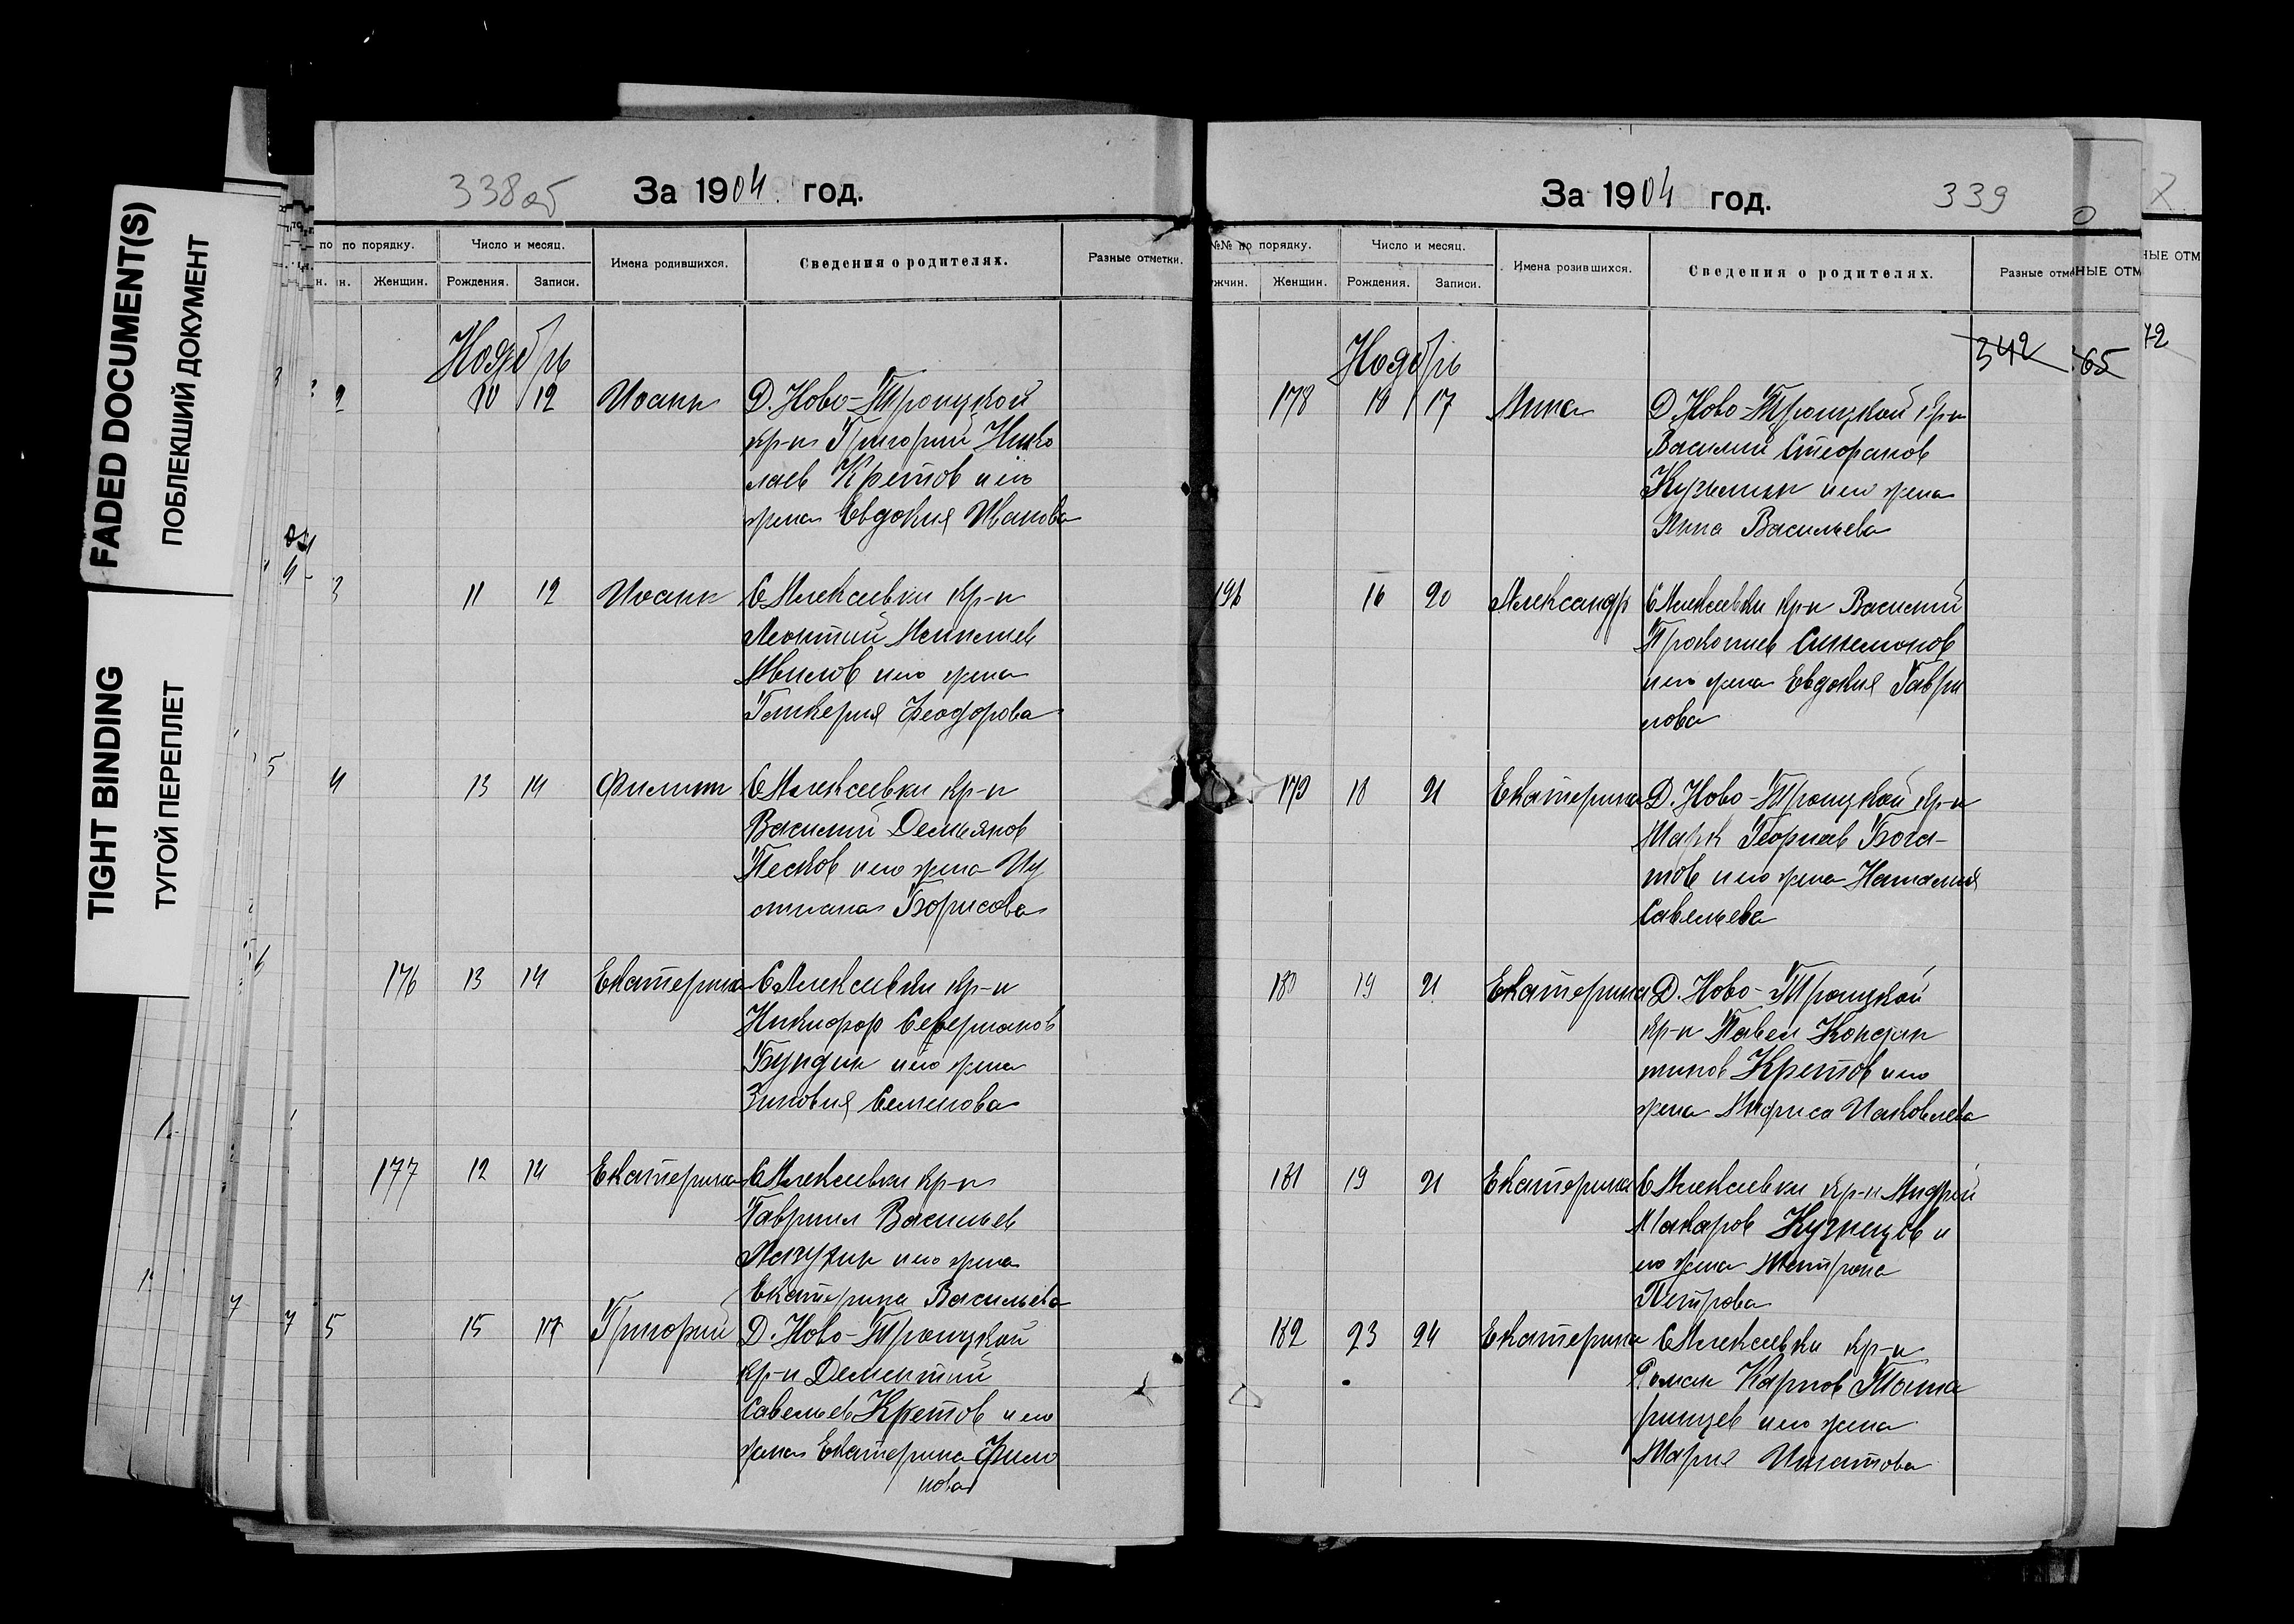 FADED DOCUMENT(S)
ПОБЛЕКШИЙ ДОКУМЕНТ
TIGHT BINDING
ТУГОЙ ПЕРЕПЛЕТ
338об
За 1904 год.
по по порядку.
Число и месяц.
Имена родившихся.
Сведения о родителях.
Разные отметки.
Женщин.
Рождения.
Записи.
Ноябрь
2 10 12 Иоанн Д. Ново-Троицкой
кр-н Григорий Нико
лаев Кретов и его
жена Евдокия Иванова
3 11 12 Иоанн С Алексеевки кр-н
Леонтий
Авилов и его жена
Гликерия Феодорова
4 13 14 Филипп С Алексеевки кр-н
Василий Демьянов
Песков и его жена Иу
стиана Борисова
176 13 14 Екатерина С Алексеевки кр-н
Никифор
Бундин и его жена
Зиновия Семенова
177 12 14 Екатерина С Алексеевки кр-н
Гавриил Васильев
и его жена
Екатерина Васильева
5 15 17 Григорий Д. Ново-Троицкой
кр-н Дементий
Савельев Кретов и его
жена Екатерина Фили
нова
За 1904 год.
339
№№ по порядку.
Число и месяц.
Имена розившихся.
Сведения о родителях.
Разные отме
ные отм
ные отм
жчин.
Женщин.
Рождения.
Записи.
342
65
72
Ноябрь
178 10 17 Анна Д. Ново-Троицкой кр-н
Василий Стефанов
Кузьмин и его жена
Анна Васильева
196 16 20 Александр С Алексеевки кр-н Василий
Прокопиев Симонов
и его жена Евдокия Гаври
лова
179 18 21 Екатерина Д. Ново-Троицкой кр-н
Марк Георгиев Бога-
тов и его жена Наталия
Савельева
180 19 21 Екатерина Д. Ново-Троицкой
кр-н Павел Кондра
тинов Кретов и его
жена Анфиса Иаковлева
181 19 21 Екатерина С Алексеевки кр-н Андрей
Макаров Кузнецов и
его жена Матрона
Петрова
182 23 24 Екатерина С Алексеевки кр-н
Роман Карпов Таша
ринцев и его жена
Мария Игнатова